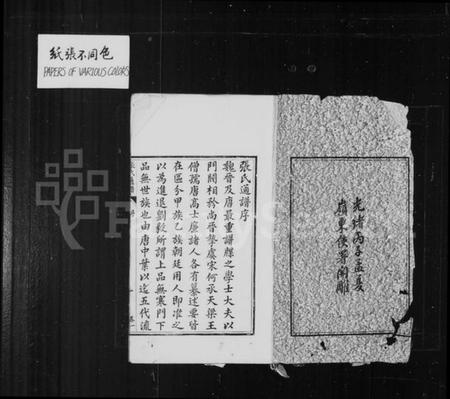 紙張不同色
PAPERS OF VARIOUS COLORS
光緒丙子孟夏
張氏通譜序
魏晉及唐最重譜牒之學士大夫以
門閥相矜尚晉摯虞宋何承天梁王
僧孺唐高士廉諸人各有纂述要皆
在區分甲族乙族朝廷用人即准之
以為進退劉毅所謂上品無寒門下
品無世族也由唐中葉以迄五代流